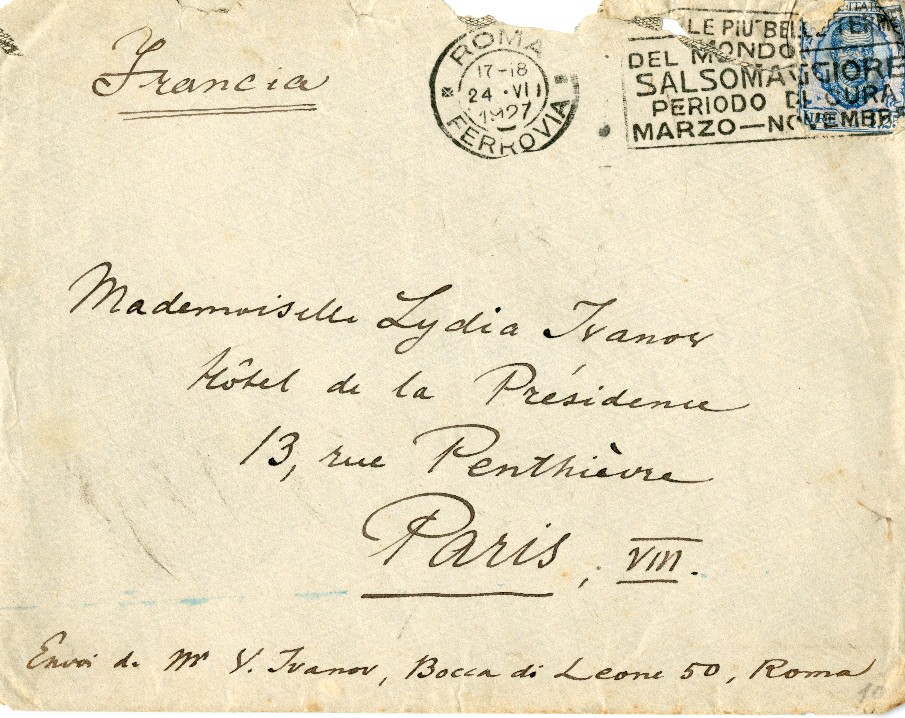 Francia
ROMA
17-18
24 · VI
1927
FERROVIA
LE PIU' BELLE TERME
DEL MONDO
SALSOMAGGIORE
PERIODO DI CURA
MARZO—NOVEMBRE
Mademoiselle Lydia Ivanov
Hôtel de la Présidence
13, rue Penthièvre
Paris, VIII.
Envoi de Mr V. Ivanov, Bocca di Leone 50, Roma